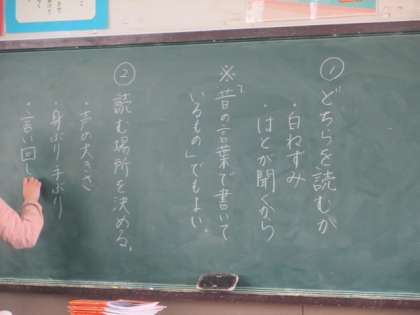 ① どちらを読むか
・白ねずみ
・はとが聞くから
※「昔の言葉で書いて
いるもの」でもよい。
② 読む場所を決める。
・声の大きさ
・身ぶり手ぶり
・言い回し